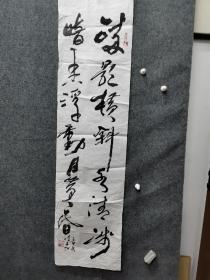 疏影横斜水清浅
暗香浮動月黄昏